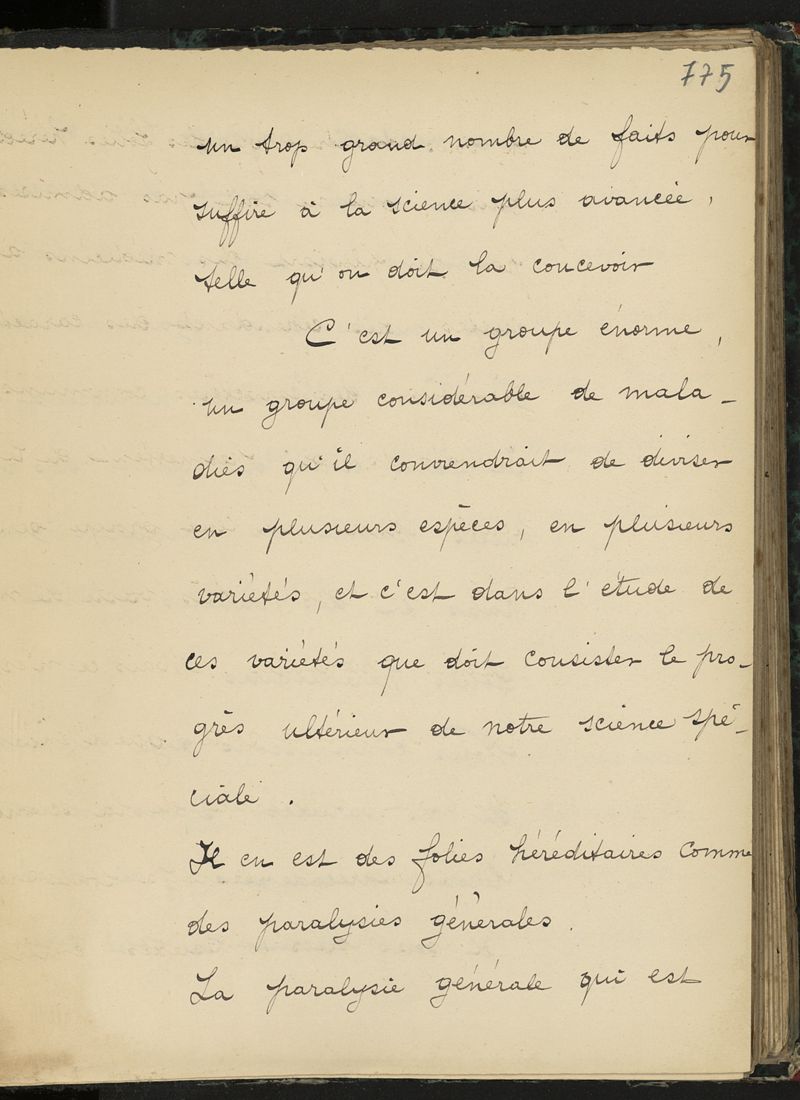 775
un trop grand nombre de faits pour
suffire à la science plus avancée,
telle qu'on doit la concevoir
C'est un groupe énorme,
un groupe considérable de mala-
dies qu'il conviendrait de diviser
en plusieurs espèces, en plusieurs
variétés, et c'est dans l'étude de
ces variétés que doit consister le pro-
grès ultérieur de notre science spé-
ciale.
Il en est des folies héréditaires comme
des paralysies générales.
La paralysie générale qui est